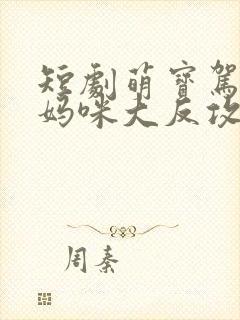 短劇萌寶駕
媽咪大反攻
周秦